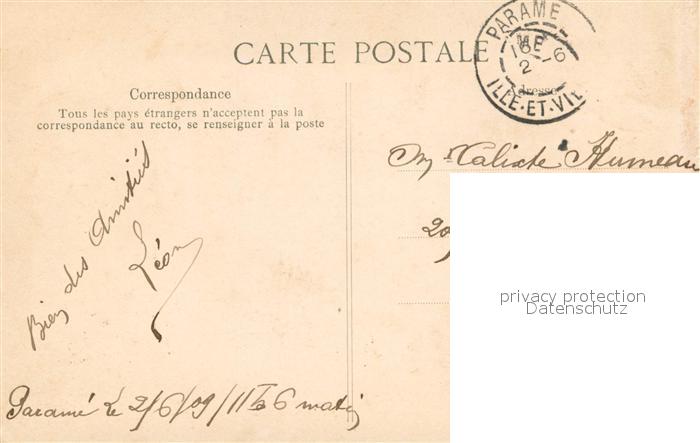 CARTE POSTALE
PARAME
ILLE-ET-VIL
2 -6
Correspondance
Tous les pays étrangers n'acceptent pas la
correspondance au recto, se renseigner à la poste
Adresse
Mr Calixte Humeau
20
Bien des Amitiés
Léon
Paramé le 2/6/09/11 6 matin
privacy protection
Datenschutz